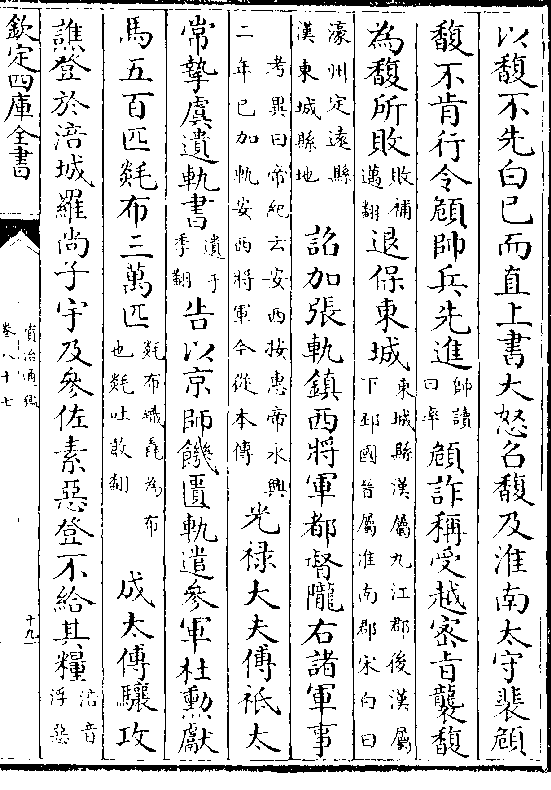 以馥不先白已而直上書大怒召馥及淮南太守裴頠
馥不肯行令頠帥兵先進帥讀曰率頠詐稱受越密旨襲馥
為馥所敗敗補邁翻退保東城東城縣漢屬九江郡後漢屬下邳國晉屬淮南郡宋白曰
濠州定遠縣漢東城縣地 詔加張軌鎮西將軍都督隴右諸軍事
考異曰帝紀云安西按惠帝永興二年已加軌安西將軍今從本傳光禄大夫傅祗太
常摯虞遺軌書遺于季翻告以京師饑匱軌遣參軍杜勲獻
馬五百匹毯布三萬匹毯布織毳為布也毯吐敢翻 成太傅驤攻
譙登於涪城羅尚子宇及參佐素惡登不給其糧涪音浮惡
欽定四庫全書
資治通鑑
卷八十七
十九